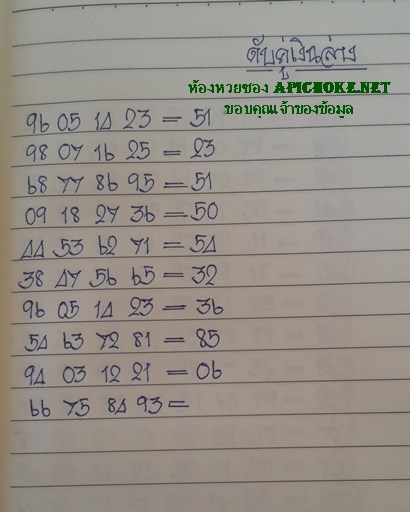 ดับคู่เงินล่าง
ห้องหวยซอง APICHOKE.NET
ขอบคุณเจ้าของข้อมูล
96 05 14 23 = 51
98 07 16 25 = 23
68 77 86 95 = 51
09 18 27 36 = 50
44 53 62 71 = 54
38 47 56 65 = 32
96 05 14 23 = 36
54 63 72 81 = 85
94 03 12 21 = 06
66 75 84 93 =